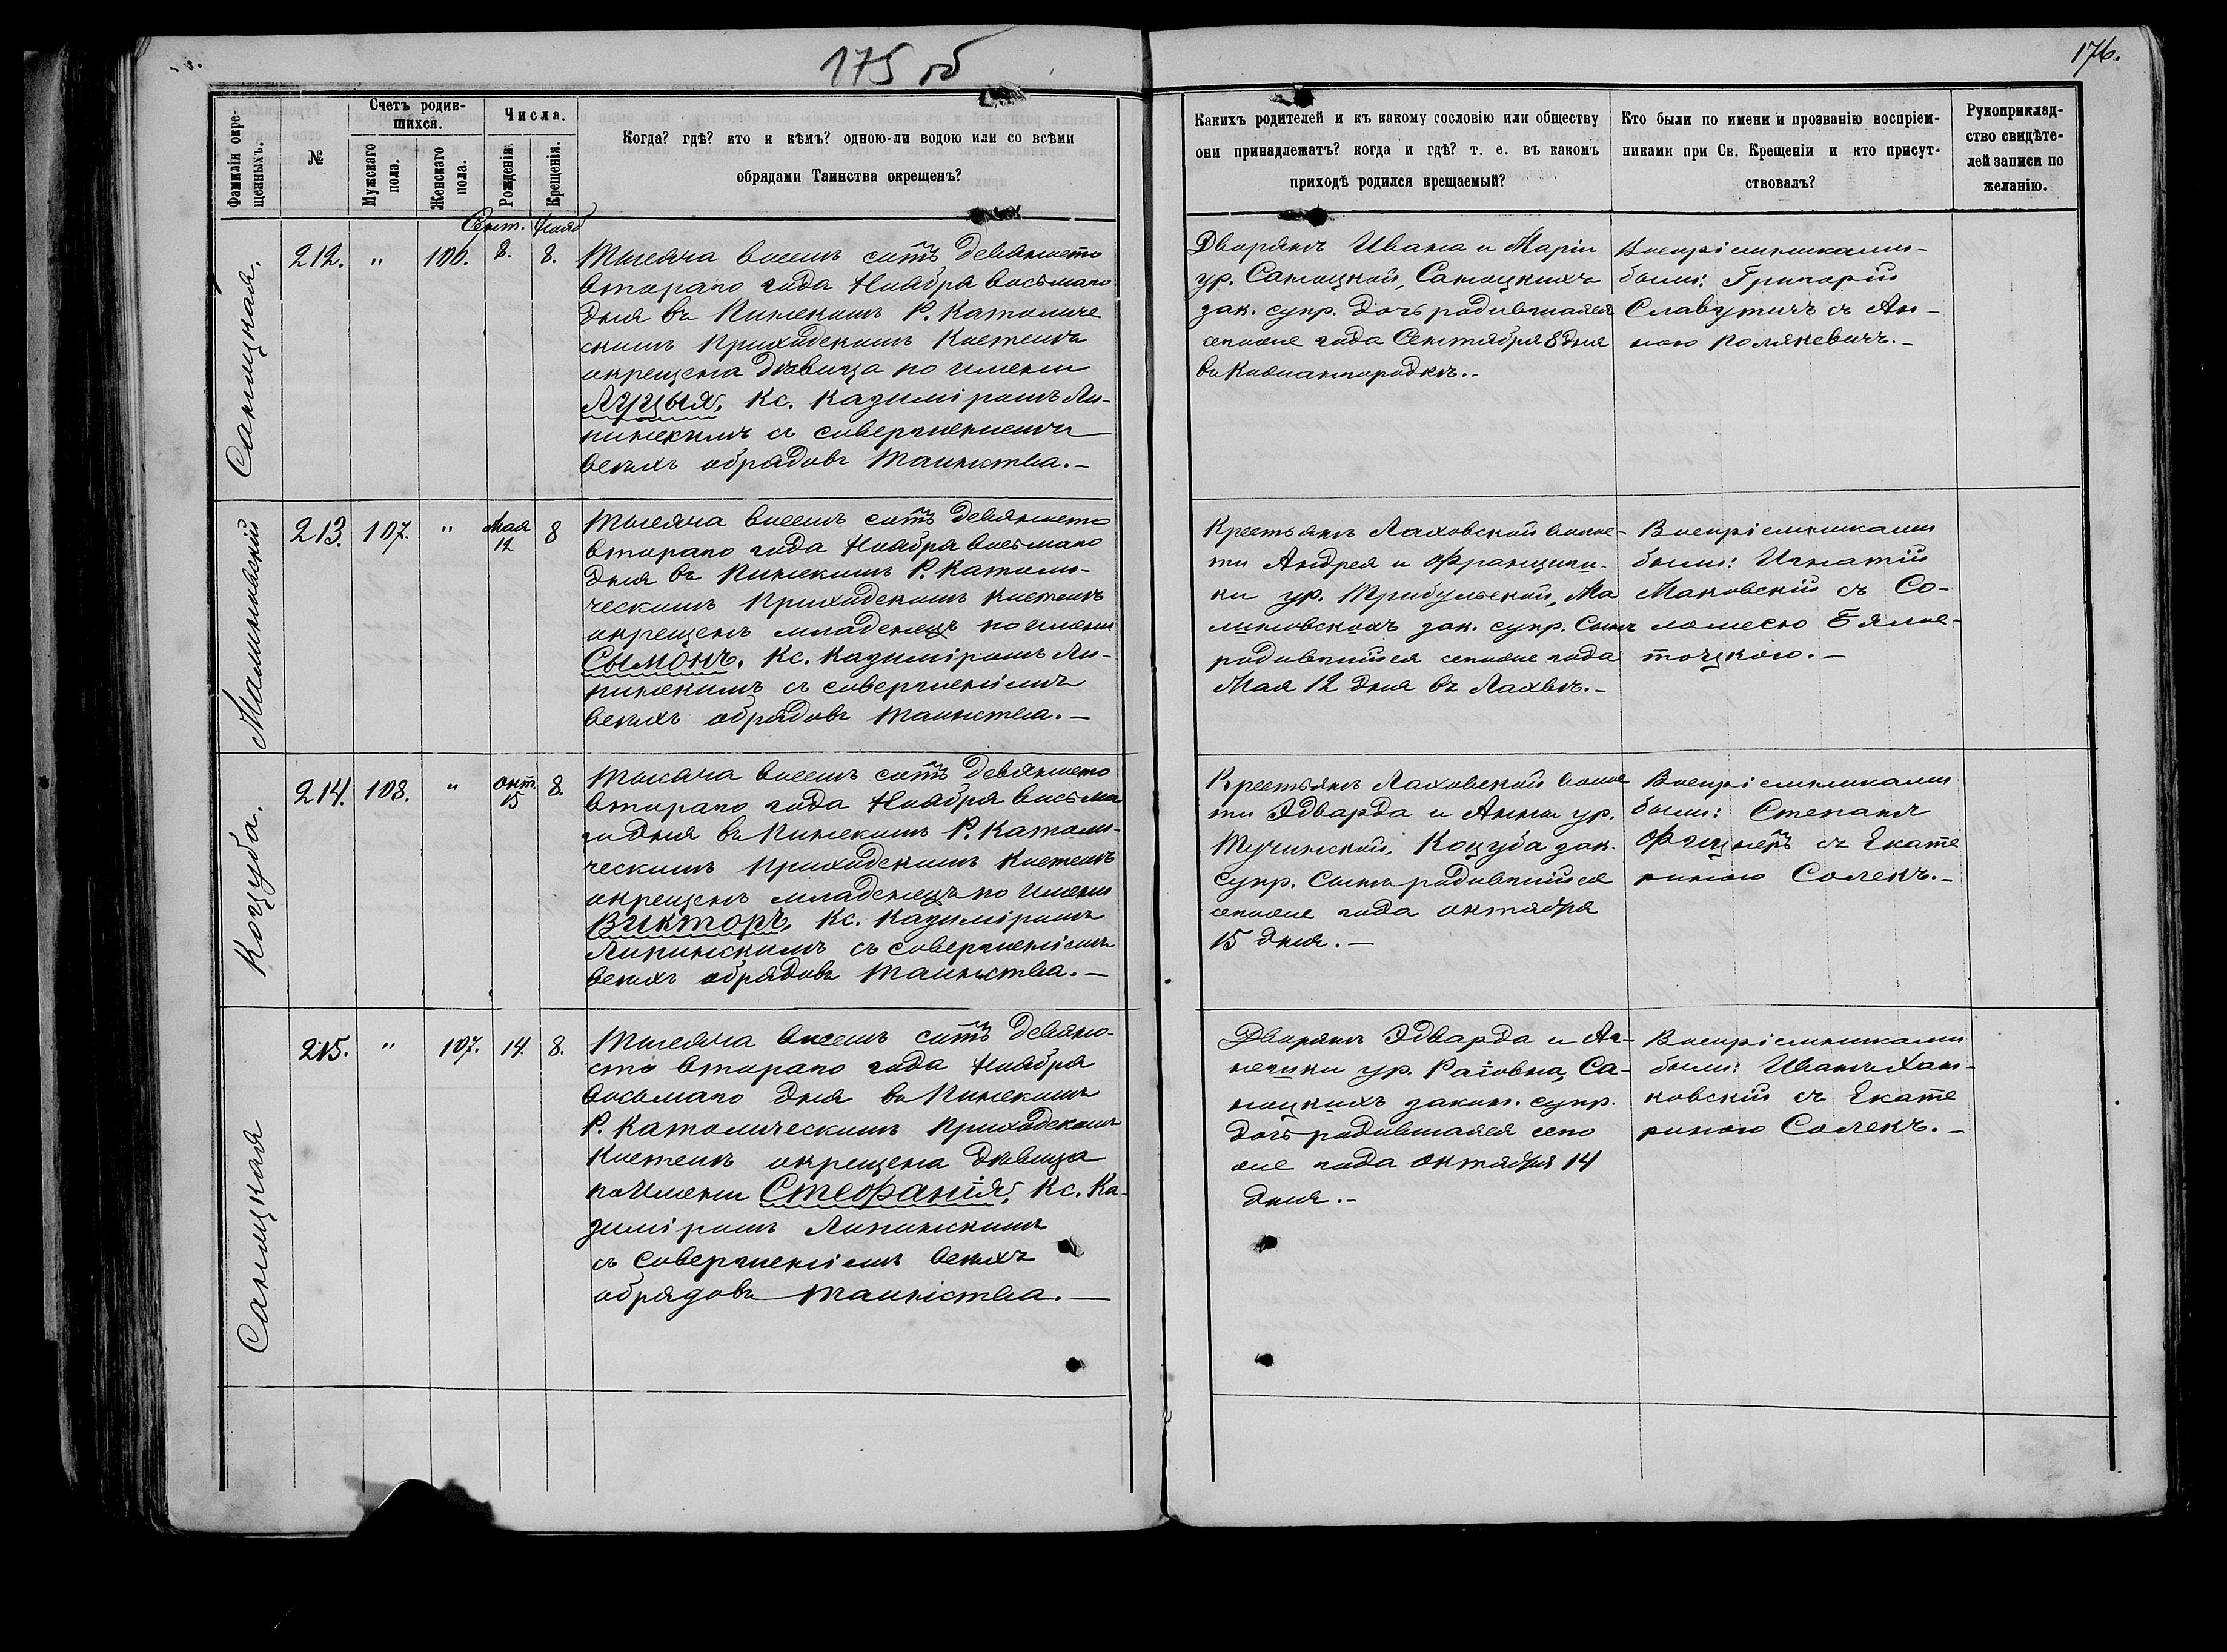 175 об
176.
Фамиліи окре-
щенныхъ.
№
Счетъ родив-
шихся.
Мужскаго
пола.
Женскаго
пола.
Числа.
Рожденія.
Крещенія.
Когда? гдѣ? кто и кѣмъ? одною-ли водою или со всѣми
обрядами Таинства окрещенъ?
Какихъ родителей и къ какому сословію или обществу
они принадлежатъ? когда и гдѣ? т. е. въ какомъ
приходѣ родился крещаемый?
Кто были по имени и прозванію воспріем-
никами при Св. Крещеніи и кто присут-
ствовалъ?
Рукоприклад-
ство свидѣте-
лей записи по
желанію.
Саноцкая.
212.
"
106.
Сент.
8.
Нояб
8.
Тысяча восемь сотъ девяносто
втораго года Ноября восьмаго
дня въ Пинскомъ Р. Католиче
скомъ Приходскомъ Костелѣ
окрещена дѣвица по имени
Луцыя, Кс. Казиміромъ Ли-
пинскимъ съ совершениемъ
всѣхъ обрядовъ таинства.—
Дворянъ Ивана и Маріи
ур. Саноцкой, Саноцкихъ
зак. супр. дочь родившаяся
сегоже года Сентября 8 дня
въ Кожангородкѣ.—
Воспріемниками
были: Григорій
Славутичъ съ Ан-
ною Полякевичъ.—
Малиновскій
213.
107.
"
Мая
12
8
Тысяча восемь сотъ девяносто
втораго года Ноября восьмаго
дня въ Пинскомъ Р. Католи-
ческомъ Приходскомъ Костелѣ
окрещенъ младенецъ по имени
Сымонъ, Кс. Казиміромъ Ли-
пинскимъ съ совершеніемъ
всѣхъ обрядовъ таинства.—
Крестьянъ Лаховской волос-
ти Андрея и Францишки
ур. Трибульской, Ма
линовскихъ зак. супр. Сынъ
родившійся сегоже года
Мая 12 дня въ Лахвѣ.—
Воспріемниками
были: Игнатій
Маковскій съ Со-
ломеею Бялос-
тоцкою.—
Коцуба.
214.
108.
"
окт.
15
8.
Тысяча восемь сотъ девяносто
втораго года Ноября восьма
го дня въ Пинскомъ Р. Католи-
ческомъ Приходскомъ Костелѣ
окрещенъ младенецъ по имени
Викторъ, Кс. Казиміромъ
Липинскимъ съ совершеніемъ
всѣхъ обрядовъ таинства.—
Крестьянъ Лаховской волос
ти Эдварда и Анны ур.
Тучинской, Коцуба зак.
супр. Сынъ родившійся
сегоже года октября
15 дня.—
Воспріемниками
были: Степанъ
съ Екате
риною Солекъ.—
Саноцкая
215.
"
107.
14.
8.
Тысяча восемь сотъ девяно-
сто втораго года Ноября
восьмаго дня въ Пинскомъ
Р. Католическомъ Приходскомъ
Костелѣ окрещена дѣвица
по имени Стефанія, Кс. Ка-
зиміромъ Липинскимъ
съ совершеніемъ всѣхъ
обрядовъ таинства.—
Дворянъ Эдварда и Аг-
нешки ур. Раіовна, Са-
ноцкихъ закон. супр.
дочь родившаяся сего
же года октября 14
дня.—
Воспріемниками
были: Иванъ Хан-
ковскій съ Екате
риною Солекъ.—